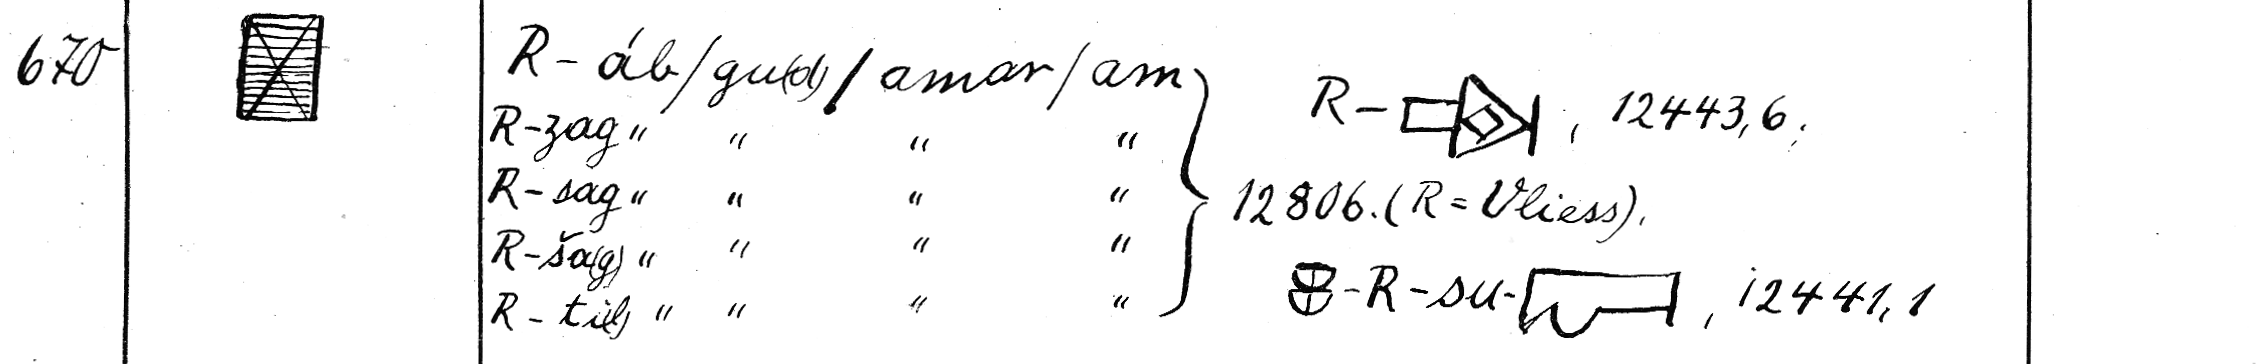 670 R-áb/gu(d)/amar/am
R-zag " " " "
R-sag " " " "
R-ša(g) " " " "
R-ti(l) " " " "
R- , 12443,6;
12806. (R = Vliess).
-R-su- , 12441,1